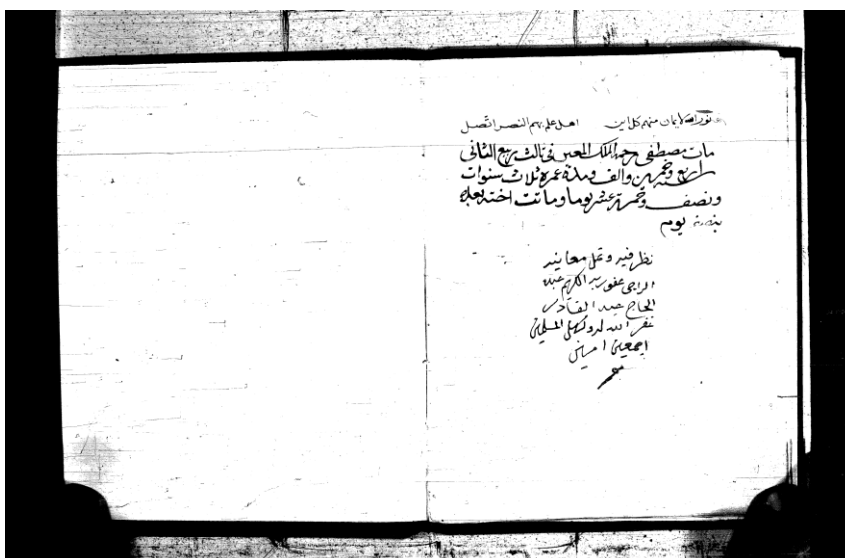 نور الايمان منهم كل اين اهل علم بهم النصر اتصل
مات مصطفى رحمه الملك المعين فى ثالث ربيع الثانى
سنة اربع وخمسين والف ومدة عمره ثلاث سنوات
ونصف وخمسة عشر يوما وماتت اخته بعده
بنصف يوم
نظر فيه وتمل معانيه
الراجى عفو ربه الكريم عبده
الحاج عبد القادر
غفر الله له ولكل المسلمين
اجمعين امين